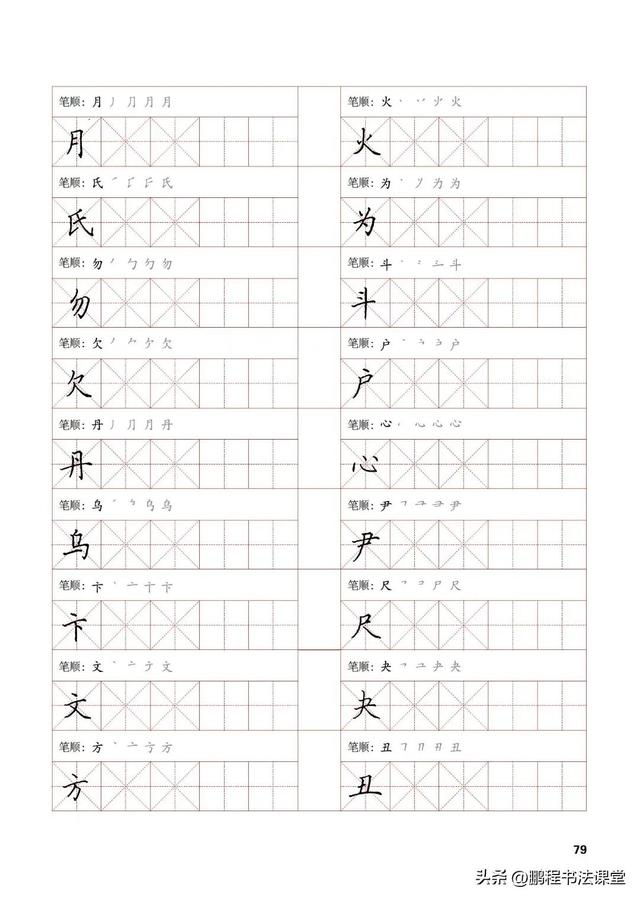 笔顺：月 丿 ⺆ 月 月
月
笔顺：氏 ノ 𠂆 氏
氏
笔顺：勿 丿 勹 勿 勿
勿
笔顺：欠 丿 𠂊 欠
欠
笔顺：丹 丿 ⺆ 月 丹
丹
笔顺：乌 丿 乌 乌
乌
笔顺：卞 丶 亠 卞
卞
笔顺：文 丶 亠 文
文
笔顺：方 丶 亠 方
方
笔顺：火 丶 丷 火 火
火
笔顺：为 丶 丷 为 为
为
笔顺：斗 丶 斗
斗
笔顺：户 丶 户
户
笔顺：心 心 心 心
心
笔顺：尹 ㇕ 彐 尹
尹
笔顺：尺 ㇕ コ 尸 尺
尺
笔顺：夬 ㇕ 夬
夬
笔顺：丑 ㇕ 丑 丑
丑
79
头条 @鹏程书法课堂